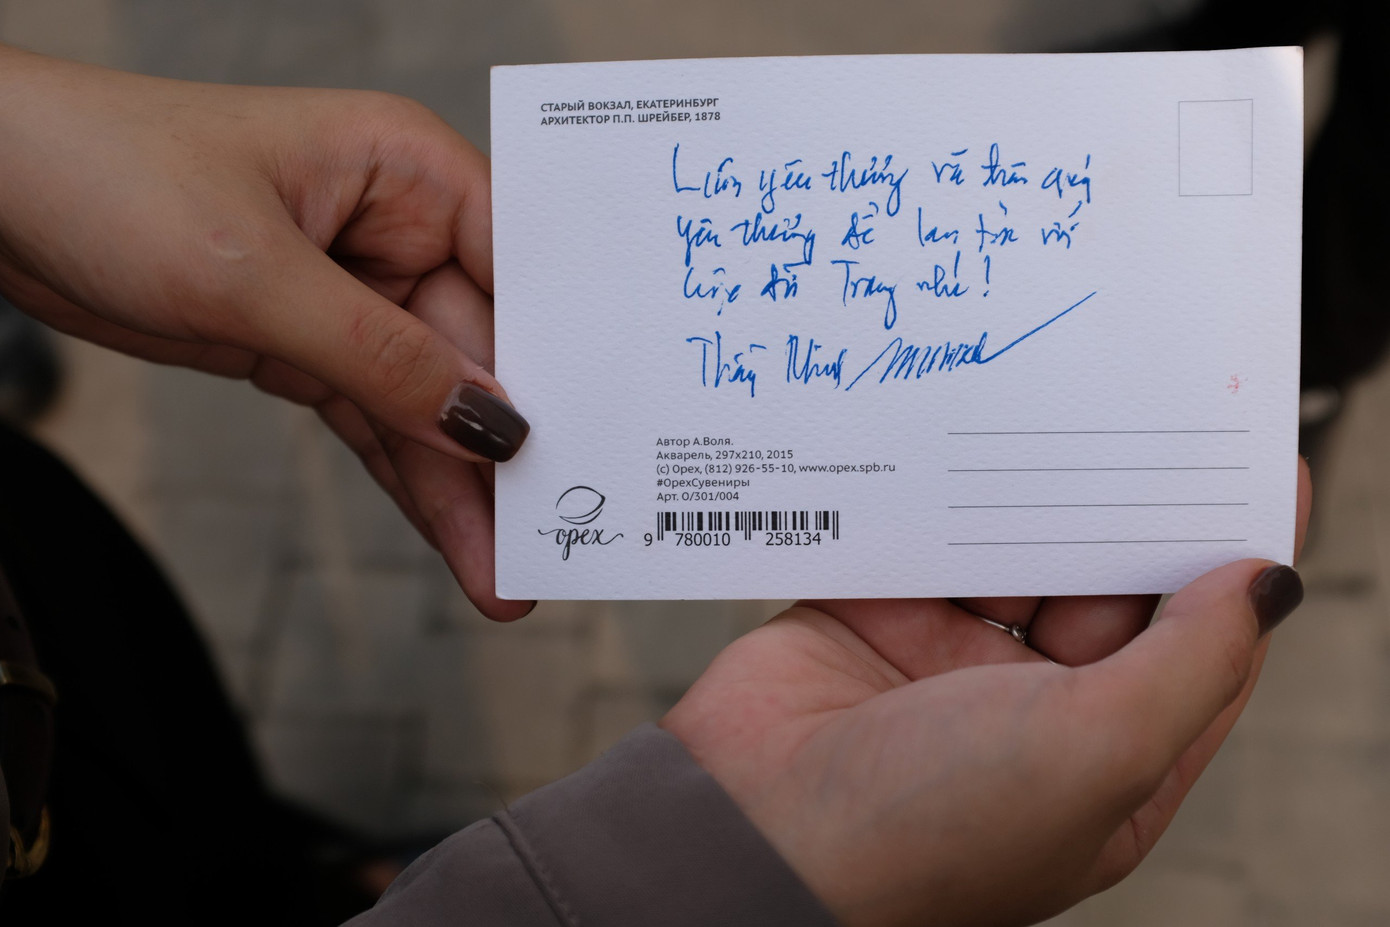 СТАРЫЙ ВОКЗАЛ, ЕКАТЕРИНБУРГ
АРХИТЕКТОР П.П. ШРЕЙБЕР, 1878
Luôn yêu thương và trân quý
yêu thương để lan tỏa với
cuộc đời Trang nhé!
Thầy
Автор А.Воля.
Акварель, 297х210, 2015
(с) Орех, (812) 926-55-10, www.opex.spb.ru
#ОрехСувениры
Арт. О/301/004
орех
9 780010 258134